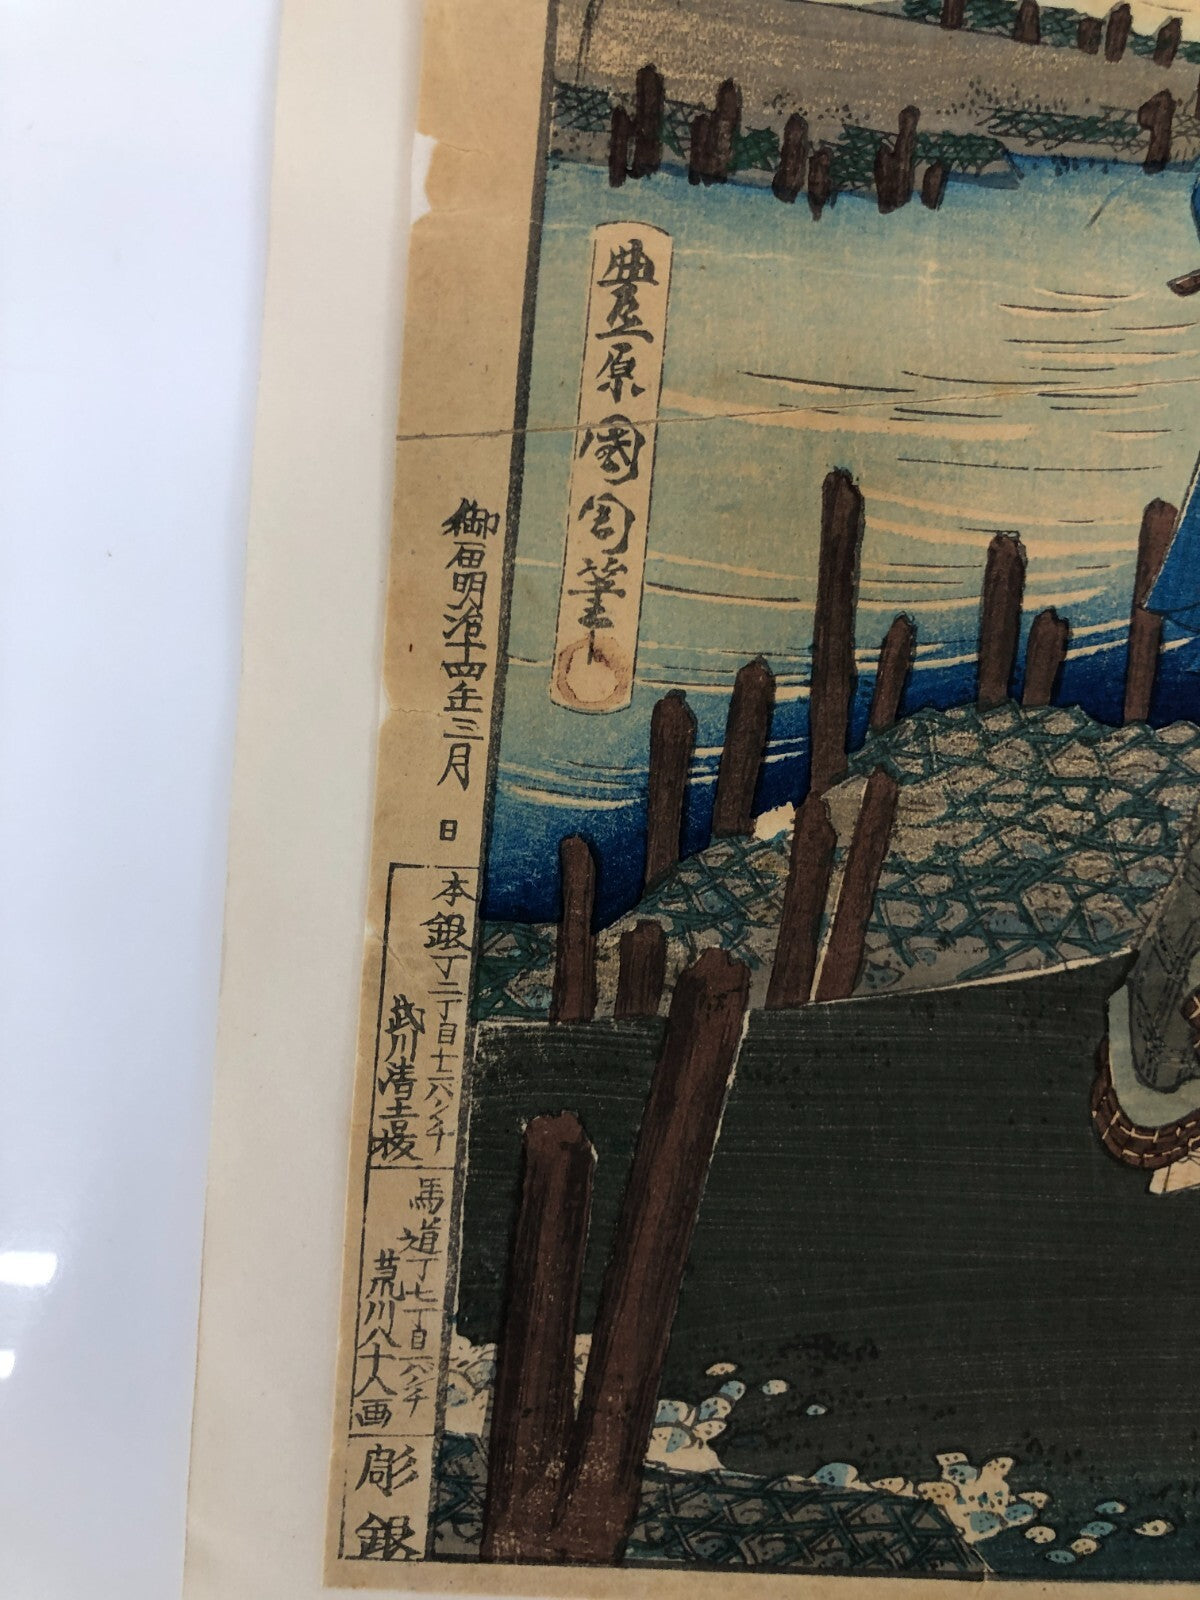 豊原國周筆
御届明治十四年三月 日
本銀丁二丁目十六バンチ
武川清吉板
馬道丁七丁目六バンチ
荒川八十八画
彫銀